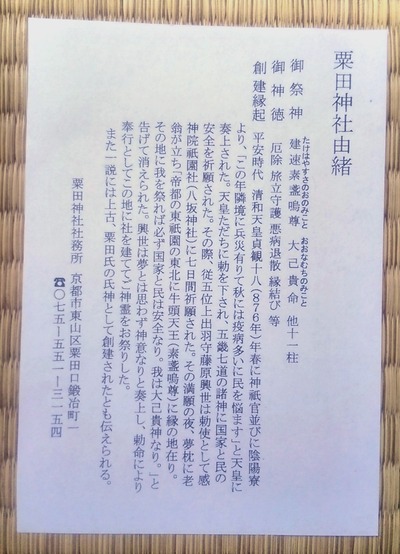 粟田神社由緒
たけはやすさのおのみこと おおなむちのみこと
御祭神 建速素盞嗚尊 大己貴命 他十一柱
御神徳 厄除 旅立守護 悪病退散 縁結び 等
創建縁起 平安時代 清和天皇貞観十八(876年)年春に神祇官並びに陰陽寮
より、「この年隣境に兵災有りて秋には疫病多いに民を悩ます」と天皇に
奏上された。天皇ただちに勅を下され、五畿七道の諸神に国家と民の
安全を祈願された。その際、従五位上出羽守藤原興世は勅使として感
神院祇園社(八坂神社)に七日間祈願された。その満願の夜、夢枕に老
翁が立ち「帝都の東祇園の東北に牛頭天王(素盞嗚尊)に縁の地在り。
その地に我を祭れば必ず国家と民は安全なり。我は大己貴神なり。」と
告げて消えられた。興世は夢とは思わず神意なりと奏上し、勅命により
奉行としてこの地に社を建ててご神霊をお祭りした。
また一説には上古、粟田氏の氏神として創建されたとも伝えられる。
粟田神社社務所 京都市東山区粟田口鍛冶町一
☎〇七五―五五一―三一五四